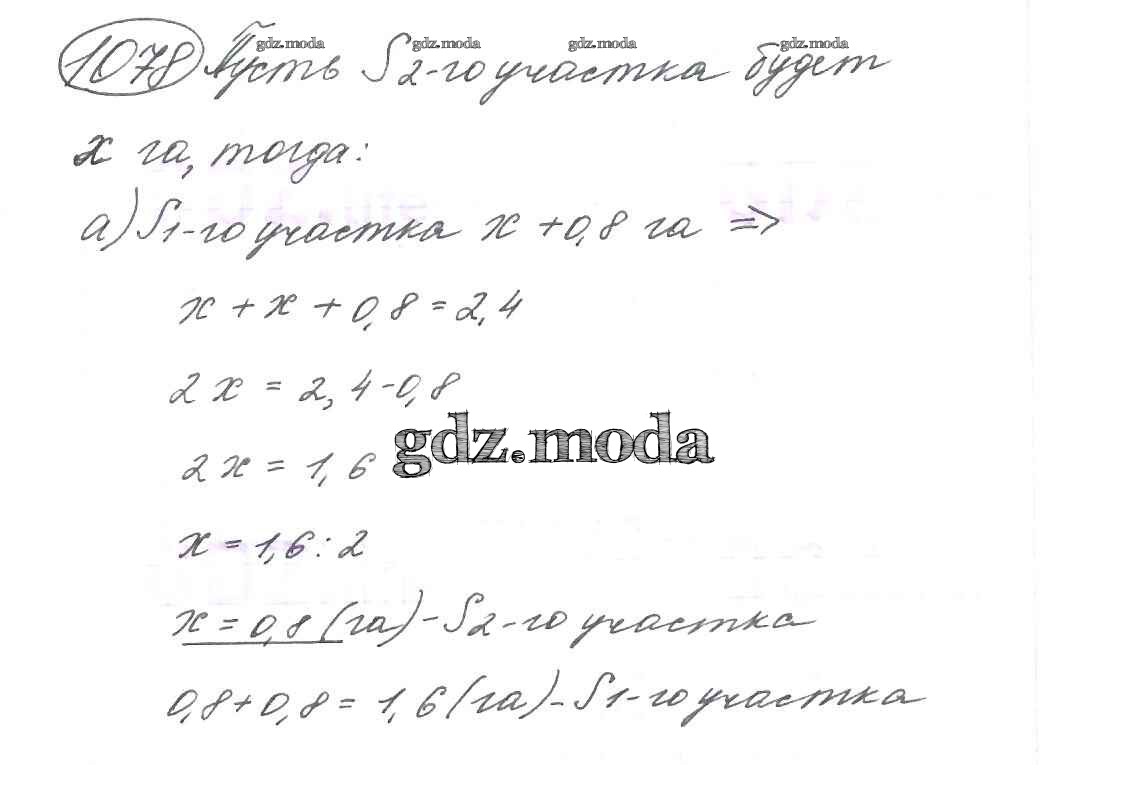 gdz.moda gdz.moda gdz.moda gdz.moda
1078 Пусть S 2-го участка будет
x га, тогда:
а) S 1-го участка x + 0,8 га =>
x + x + 0,8 = 2,4
2x = 2,4 - 0,8
gdz.moda
2x = 1,6
x = 1,6 : 2
x = 0,8 (га) - S 2-го участка
0,8 + 0,8 = 1,6 (га) - S 1-го участка